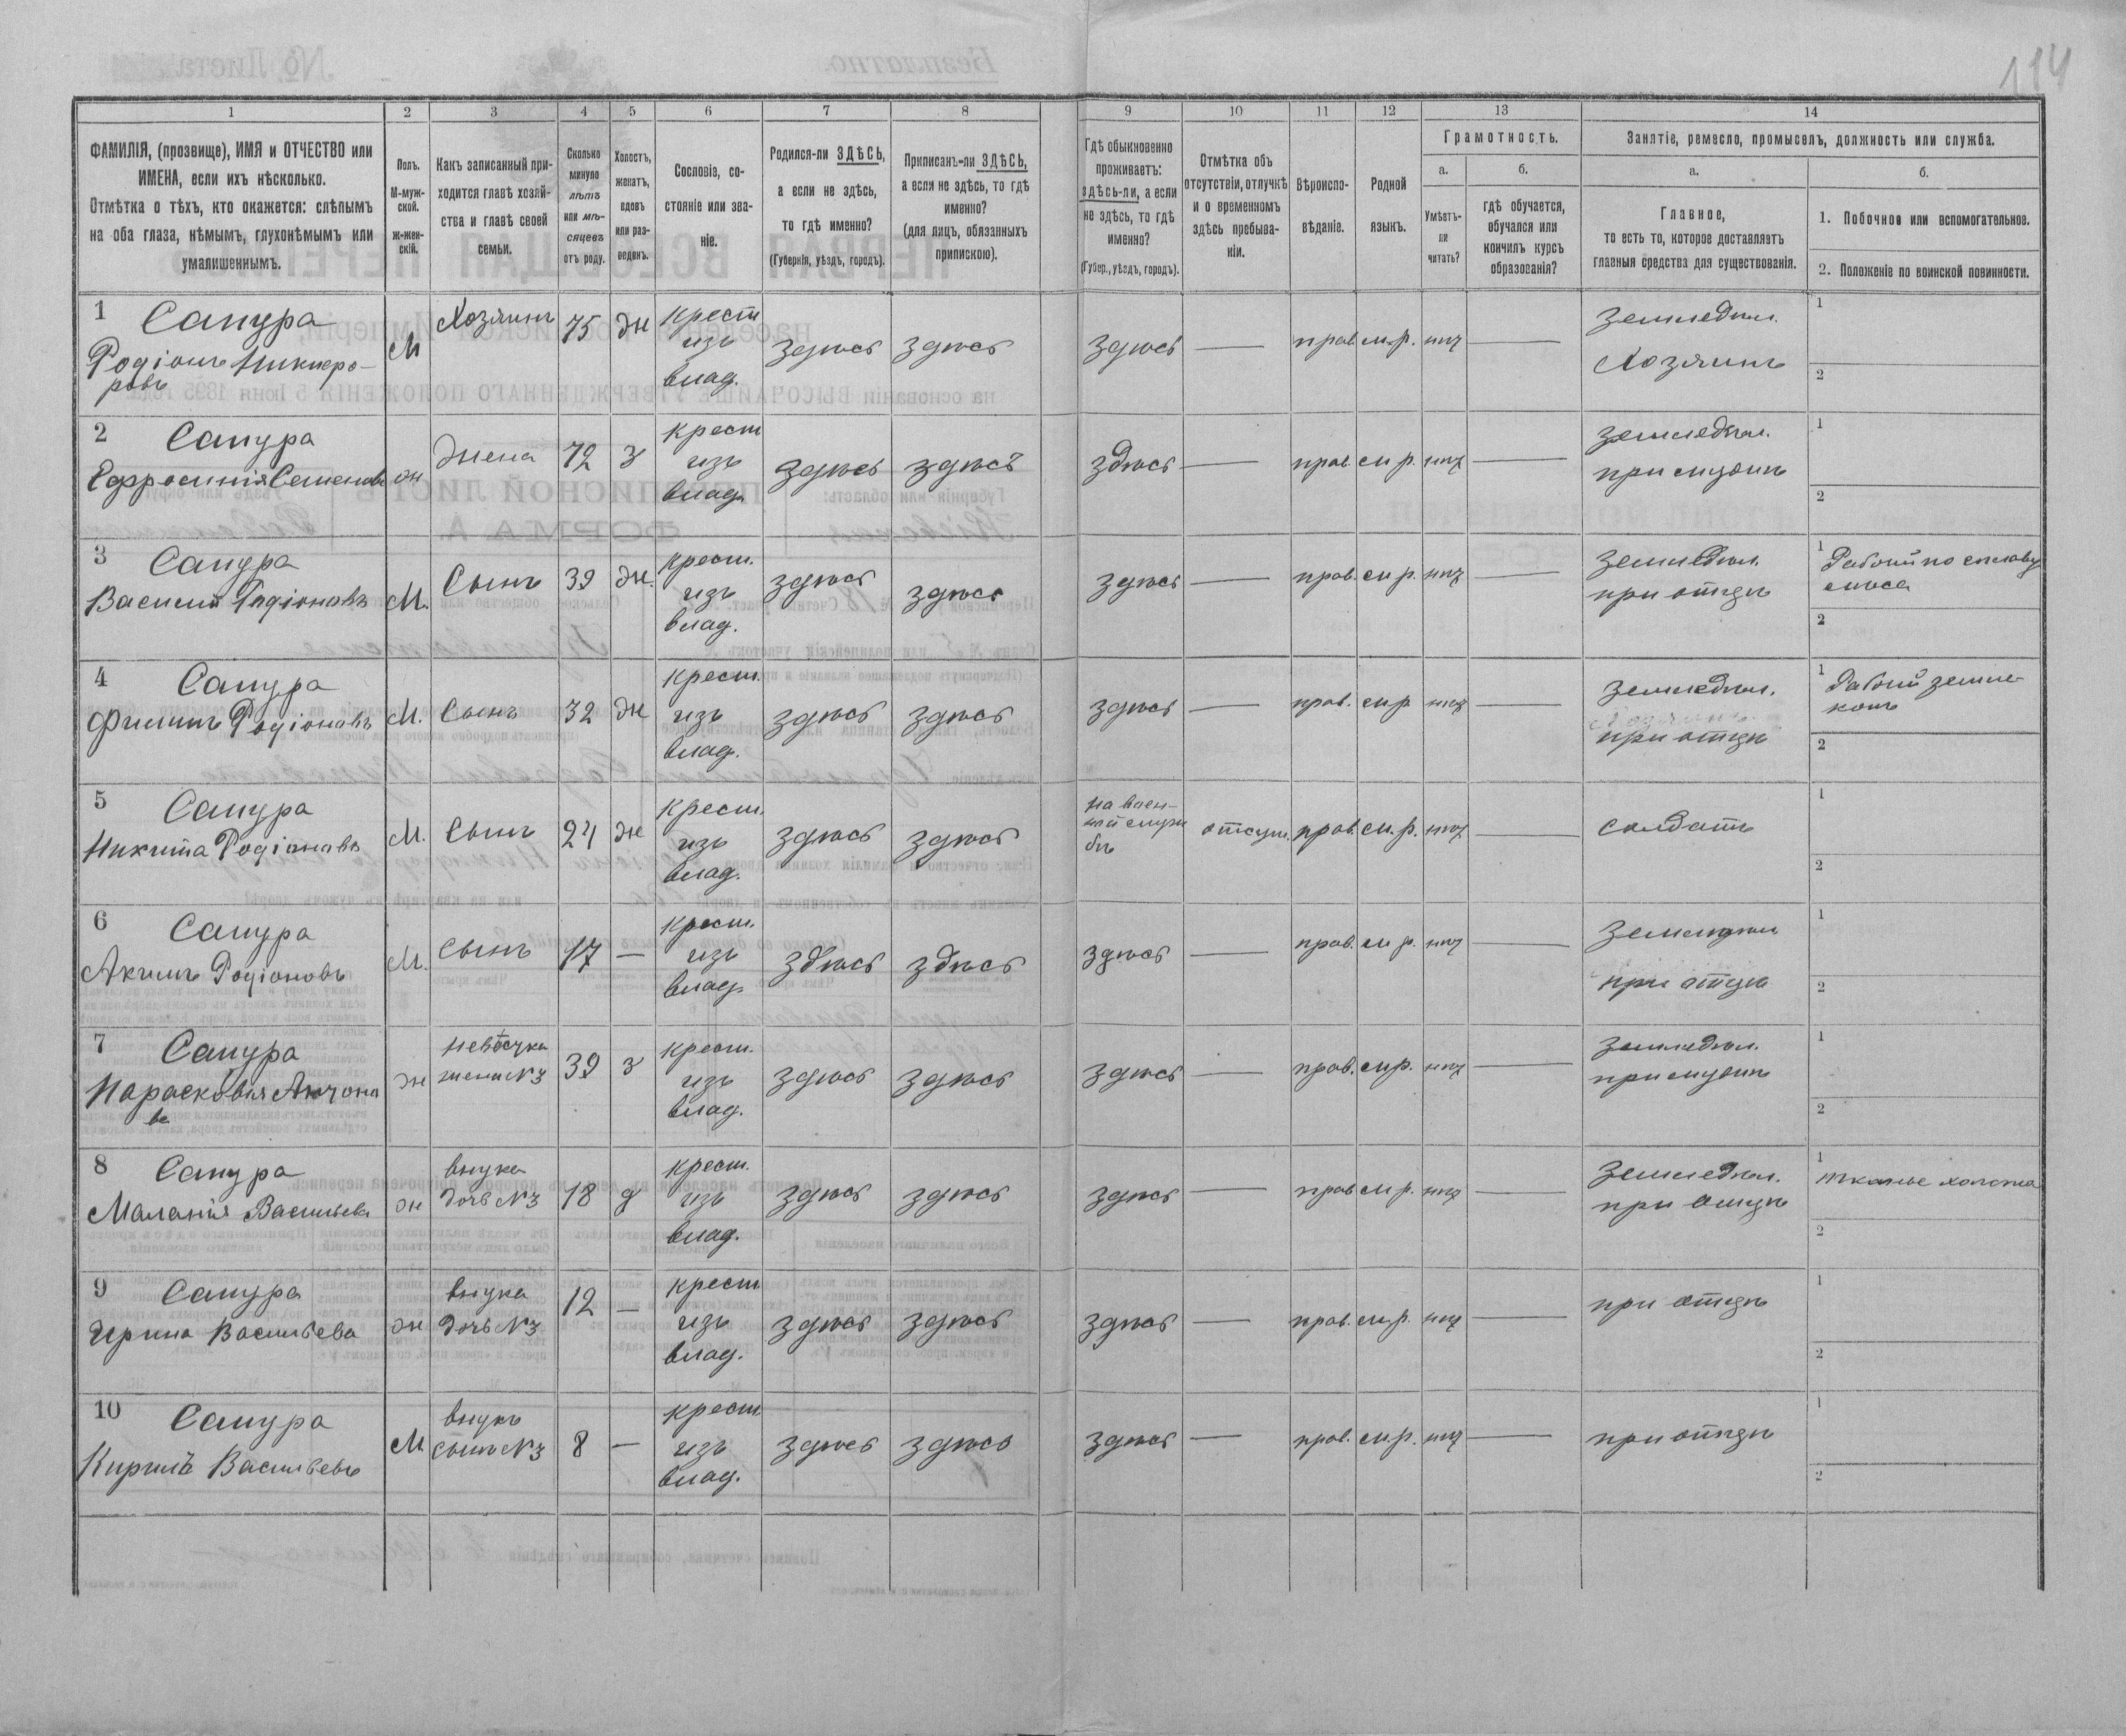 114
1 2 3 4 5 6 7 8 9 10 11 12 13 14
ФАМИЛІЯ, (прозвище), ИМЯ и ОТЧЕСТВО или
ИМЕНА, если ихъ нѣсколько.
Отмѣтка о тѣхъ, кто окажется: слѣпымъ
на оба глаза, нѣмымъ, глухонѣмымъ или
умалишеннымъ.
Полъ.
М-муж-
ской.
Ж-жен-
скій.
Какъ записанный при-
ходится главѣ хозяй-
ства и главѣ своей
семьи.
Сколько
минуло
лѣтъ
или мѣ-
сяцевъ
отъ роду.
Холостъ,
женатъ,
вдовъ
или раз-
веденъ.
Сословіе, со-
стояніе или зва-
ніе.
Родился-ли ЗДѢСЬ,
а если не здѣсь,
то гдѣ именно?
(Губернія, уѣздъ, городъ).
Приписанъ-ли ЗДѢСЬ,
а если не здѣсь, то гдѣ
именно?
(для лицъ, обязанныхъ
припискою).
Гдѣ обыкновенно
проживаетъ:
здѣсь-ли, а если
не здѣсь, то гдѣ
именно?
(Губер., уѣздъ, городъ).
Отмѣтка объ
отсутствіи, отлучкѣ
и о временномъ
здѣсь пребыва-
ніи.
Вѣроиспо-
вѣданіе.
Родной
языкъ.
Грамотность.
а.
Умѣетъ-
ли
читать?
б.
гдѣ обучается,
обучался или
кончилъ курсъ
образованія?
Занятіе, ремесло, промыселъ, должность или служба.
а.
Главное,
то есть то, которое доставляетъ
главныя средства для существованія.
б.
1. Побочное или вспомогательное.
2. Положеніе по воинской повинности.
1 Сапура
Родіонъ Никифо-
ровъ
М
Хозяинъ
75
ж
крест
изъ
влад.
здѣсь
здѣсь
здѣсь —
прав.
м.р.
нѣт
—
земледѣл.
Хозяинъ
1
2
2 Сапура
Ефросинія Семенова
ж
жена
72
з
крест
изъ
влад.
здѣсь
здѣсь
здѣсь —
прав.
м.р.
нѣт
—
земледѣл.
при мужѣ
1
2
3 Сапура
Василій Родіоновъ
М.
Сынъ
39
ж.
крест.
изъ
влад.
здѣсь
здѣсь
здѣсь —
прав.
м.р.
нѣт
—
земледѣл.
при отцѣ
1 Рабочій по сплаву
лѣса
2
4 Сапура
Филипъ Родіоновъ
М.
Сынъ
32
ж
крест.
изъ
влад.
здѣсь
здѣсь
здѣсь —
прав.
м.р.
нѣт
—
земледѣл.
при отцѣ
1 Рабочій земле-
копъ
2
5 Сапура
Никита Родіоновъ
М.
Сынъ
24
ж
крест.
изъ
влад.
здѣсь
здѣсь
на воен-
ной служ
бѣ
отсут.
прав.
м.р.
нѣт
—
солдатъ
1
2
6 Сапура
Акимъ Родіоновъ
М.
Сынъ
17
—
крест.
изъ
влад.
здѣсь
здѣсь
здѣсь —
прав.
м.р.
нѣт
—
земледѣл
при отцѣ
1
2
7 Сапура
ж
невѣстка
жена №3
39
з
крест.
изъ
влад.
здѣсь
здѣсь
здѣсь —
прав.
м.р.
нѣт
—
земледѣл.
при мужѣ
1
2
8 Сапура
Маланія Васильева
ж
внука
дочь №3
18
д
крест.
изъ
влад.
здѣсь
здѣсь
здѣсь —
прав
м.р.
нѣт
—
земледѣл.
при отцѣ
1 тканье холста
2
9 Сапура
Ирина Васильева
ж
внука
дочь №3
12
—
крест
изъ
влад.
здѣсь
здѣсь
здѣсь —
прав.
м.р.
нѣт
—
при отцѣ
1
2
10 Сапура
Кирилъ Васильевъ
М
внукъ
сынъ №3
8
—
крест.
изъ
влад.
здѣсь
здѣсь
здѣсь —
прав.
м.р.
нѣт
—
при отцѣ
1
2